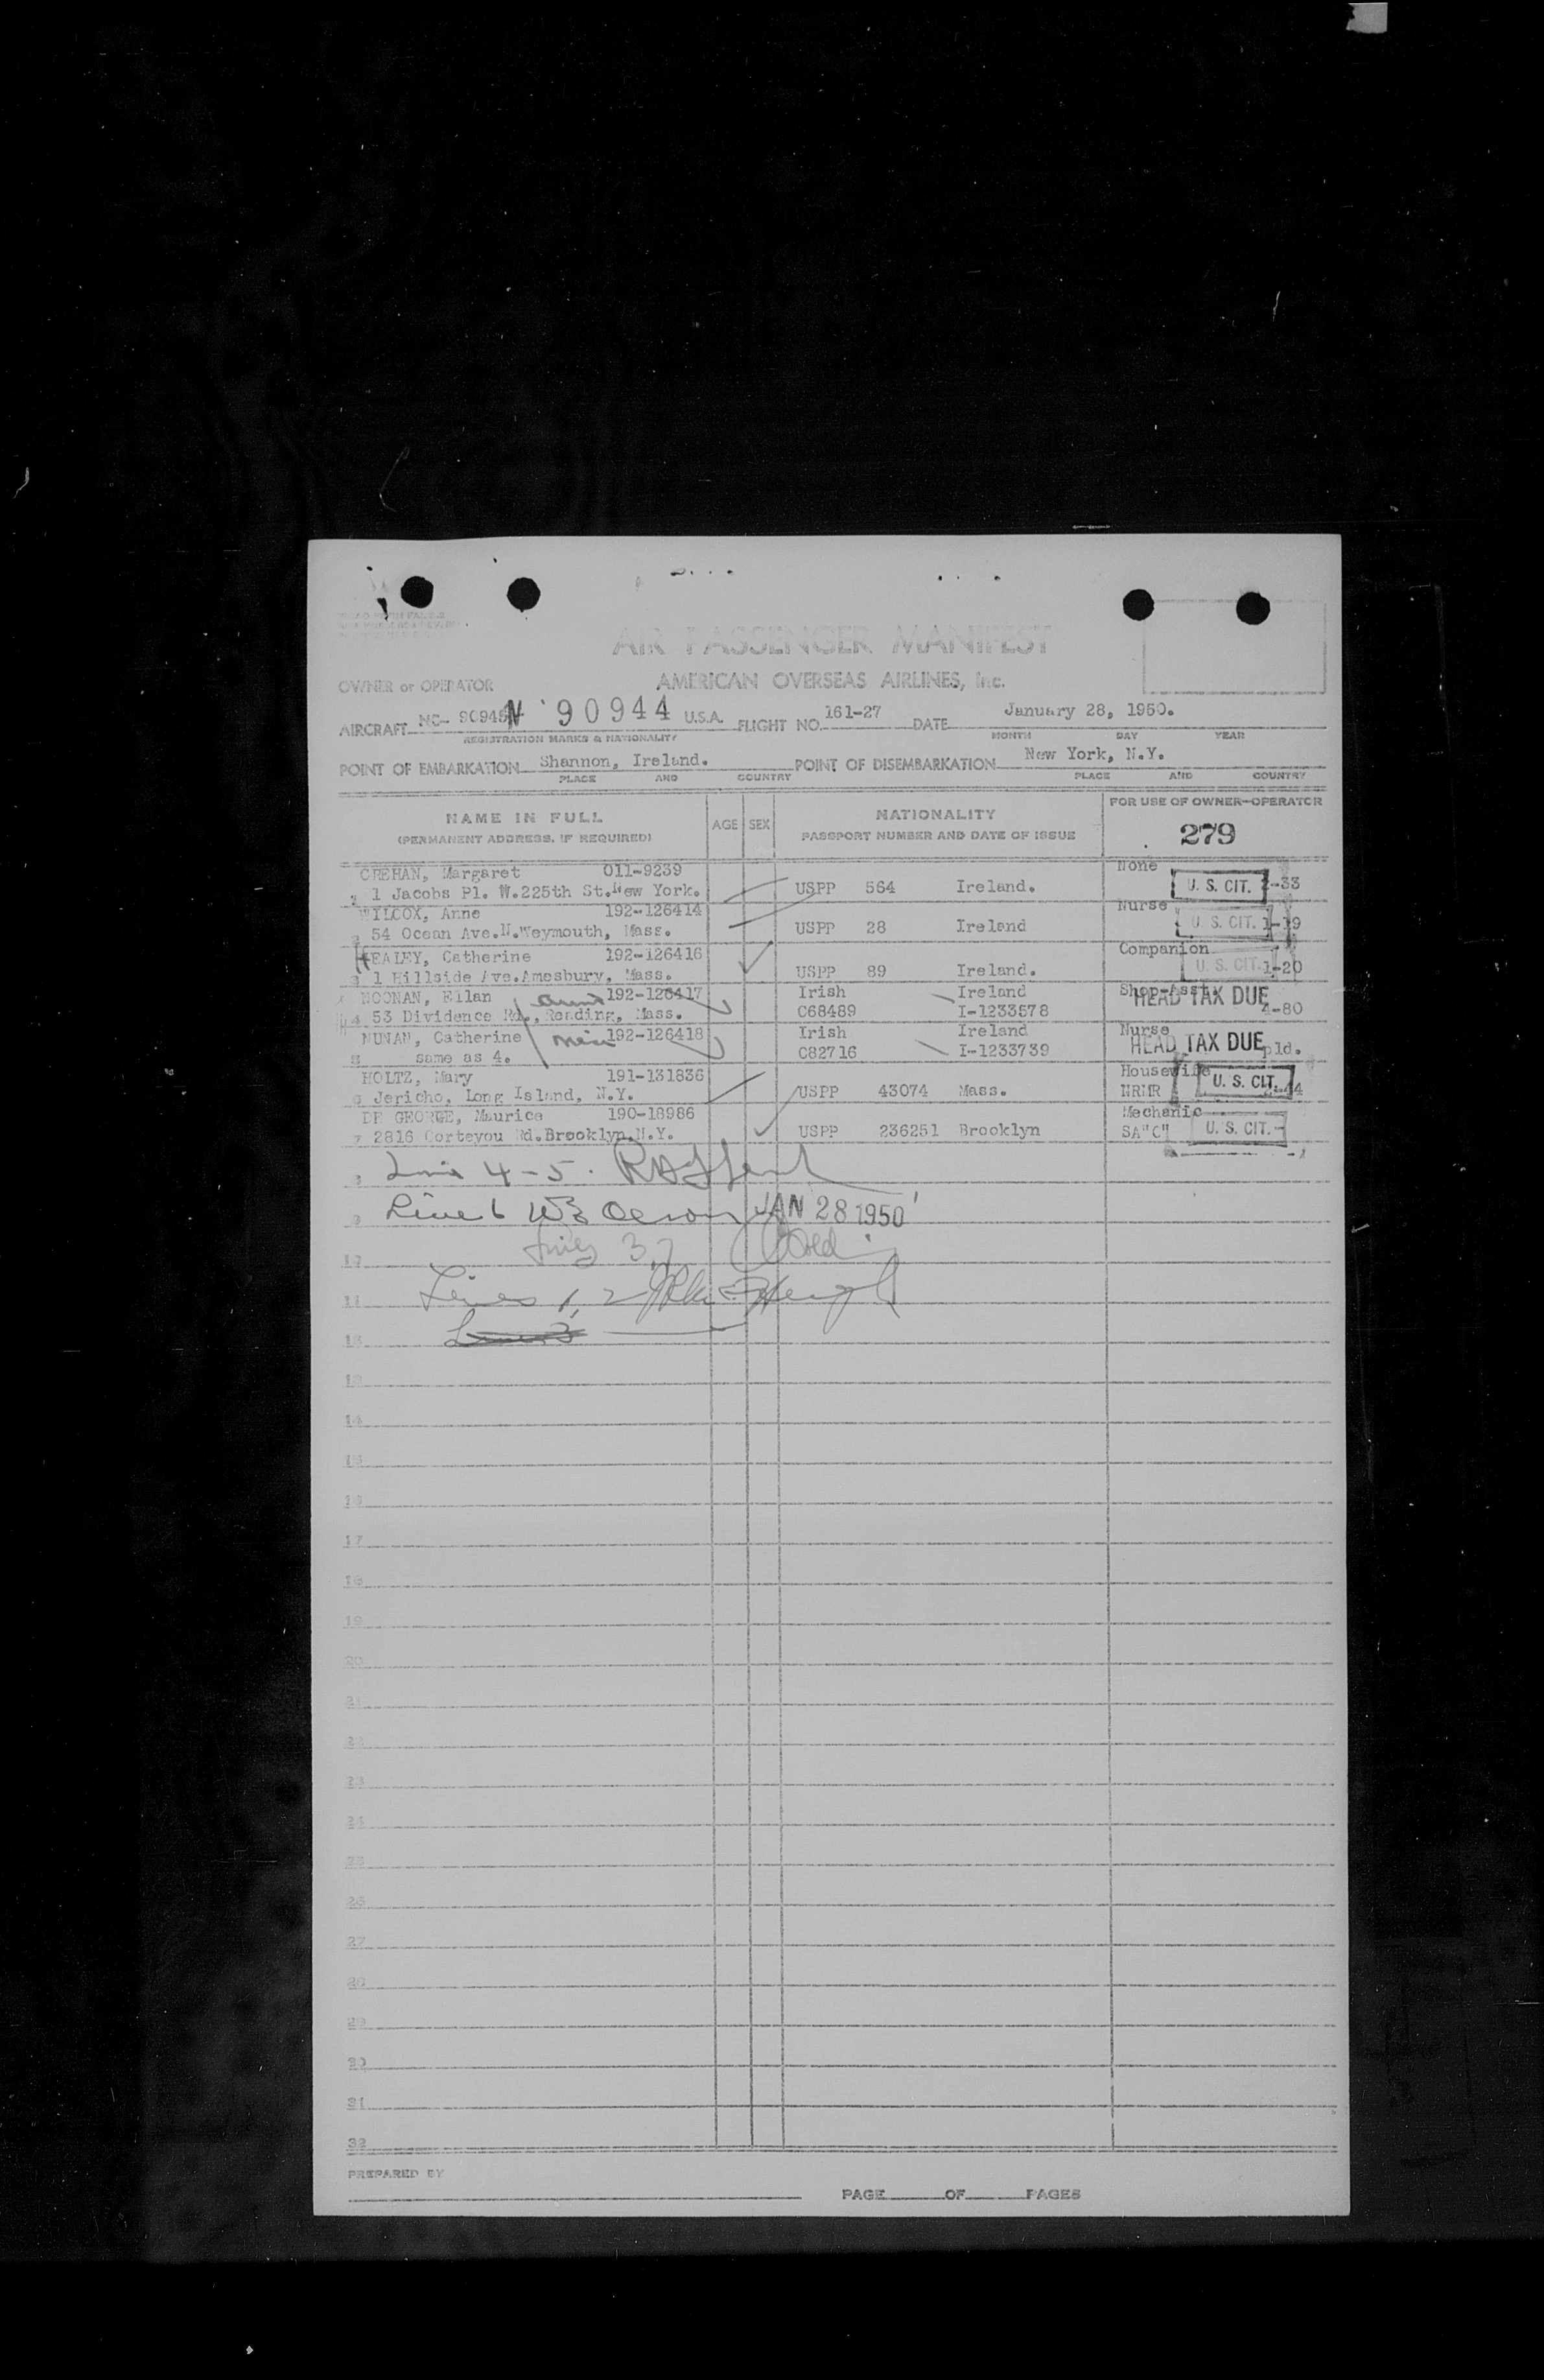 AIR PASSENGER MANIFEST
OWNER or OPERATOR AMERICAN OVERSEAS AIRLINES, Inc.
AIRCRAFT NC- 90945 N 90944 U.S.A. FLIGHT NO. 161-27 DATE January 28, 1950.
REGISTRATION MARKS & NATIONALITY MONTH DAY YEAR
POINT OF EMBARKATION Shannon, Ireland. POINT OF DISEMBARKATION New York, N.Y.
PLACE AND COUNTRY PLACE AND COUNTRY
NAME IN FULL AGE SEX NATIONALITY FOR USE OF OWNER-OPERATOR
(PERMANENT ADDRESS, IF REQUIRED) PASSPORT NUMBER AND DATE OF ISSUE 279
CREHAN, Margaret 011-9239 None
1 Jacobs Pl. W.225th St.New York. USPP 564 Ireland. U. S. CIT. 2-33
WYLCOX, Anne 192-126414 Nurse
54 Ocean Ave.N.Weymouth, Mass. USPP 28 Ireland U. S. CIT. 1-19
HEALEY, Catherine 192-126416 Companion
3 1 Hillside Ave.Amesbury, Mass. USPP 89 Ireland. U. S. CIT. 1-20
NOONAN, Eilan Aunt 192-126417 Irish Ireland Shop-Asst.
4 53 Dividence Rd., Reading, Mass. C68489 I-1233578 HEAD TAX DUE 4-80
NUNAN, Catherine 192-126418 Irish Ireland Nurse
5 same as 4. C82716 I-1233739 HEAD TAX DUE pld.
HOLTZ, Mary 191-131836 Housewife
6 Jericho, Long Island, N.Y. USPP 43074 Mass. NRMR U. S. CIT.
DE GEORGE, Maurice 190-18986 Mechanic
7 2816 Corteyou Rd.Brooklyn.N.Y. USPP 236251 Brooklyn SA"C" U. S. CIT.
8 4-5.
9 Line 6 JAN 28 1950
10 3,7
11 Lines 1, 2
12
13
14
15
16
17
18
19
20
21
22
23
24
25
26
27
28
29
30
31
32
PREPARED BY
PAGE OF PAGES